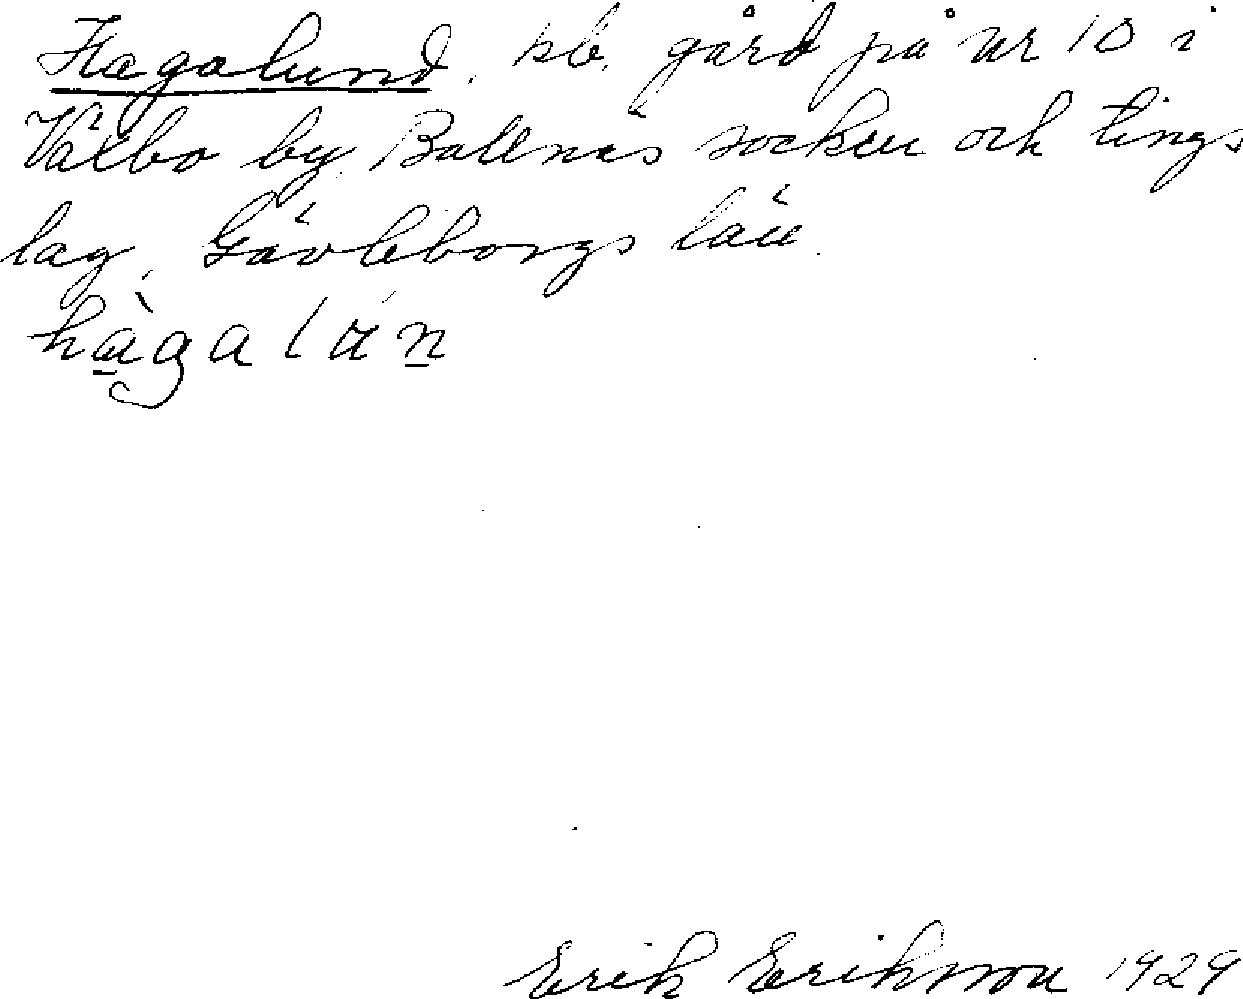 Hagalund. kb. gård på nr 10 i
Välbo by, Bollnäs socken och tings
lag, Gävleborgs län.
hàgalún
Erik Eriksson 1929